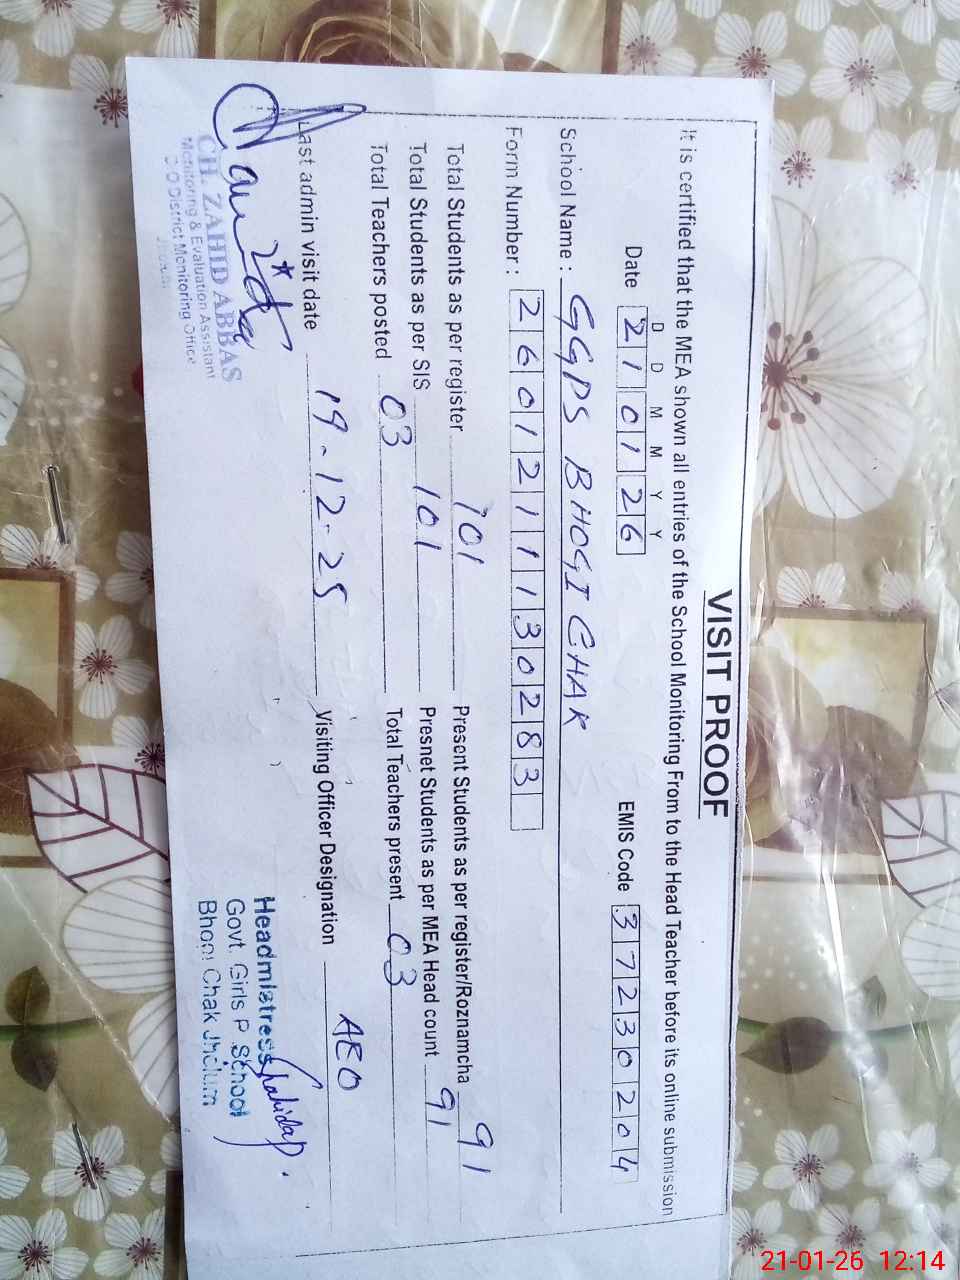 VISIT PROOF
It is certified that the MEA shown all entries of the School Monitoring From to the Head Teacher before its online submission
D D M M Y Y
Date 21 01 26 EMIS Code 37230204
School Name : GGPS BHOGI CHAK
Form Number : 2601211130283
Total Students as per register 101 Present Students as per register/Roznamcha 91
Total Students as per SIS 101 Presnet Students as per MEA Head count 91
Total Teachers posted 03 Total Teachers present 03
Last admin visit date 19-12-25 Visiting Officer Designation AEO
CH. ZAHID ABBAS
Monitoring & Evaluation Assistant
O/O District Monitoring Office
Jhelum
Headmistress
Govt. Girls P. School
Bhogi Chak Jhelum
21-01-26 12:14